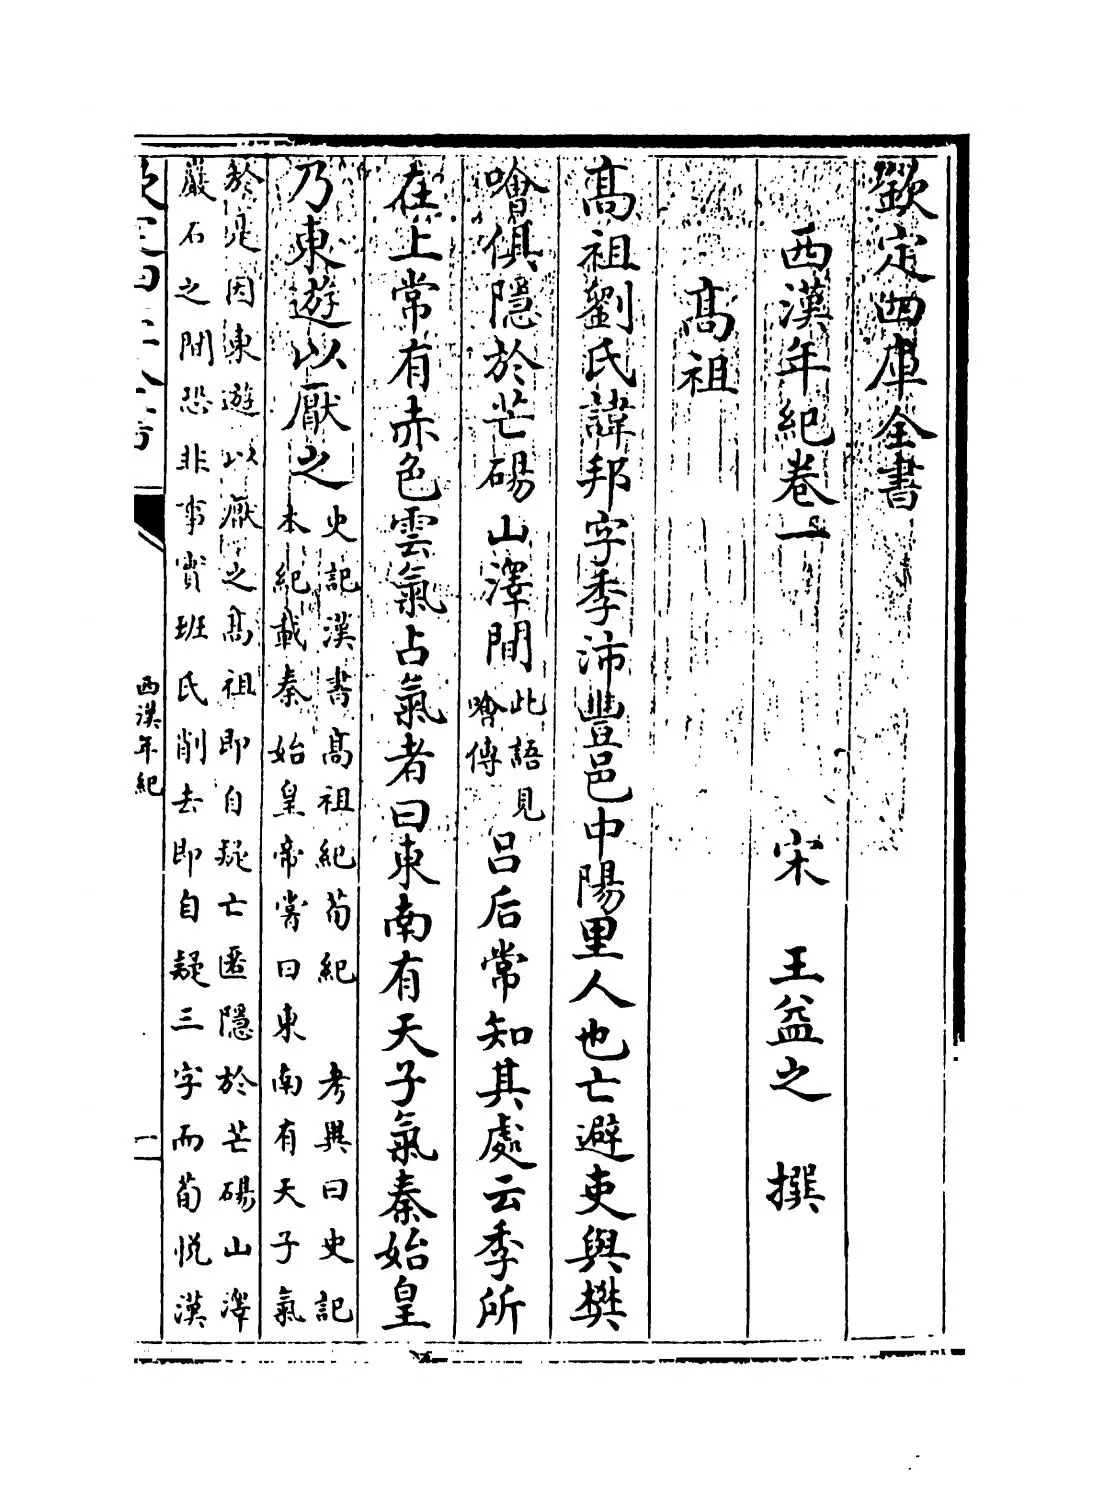 欽定四庫全書
西漢年紀卷一　宋　王益之　撰
高祖
高祖劉氏諱邦字季沛豐邑中陽里人也亡避吏與樊
噲俱隱於芒碭山澤間此語見噲傳呂后常知其處云季所
在上常有赤色雲氣占氣者曰東南有天子氣秦始皇
乃東遊以厭之史記漢書高祖紀荀紀　考異曰史記
本紀載秦始皇帝嘗曰東南有天子氣
於是因東遊以厭之高祖即自疑亡匿隱於芒碭山澤
巖石之間恐非事實班氏削去即自疑三字而荀悅漢
西漢年紀
一